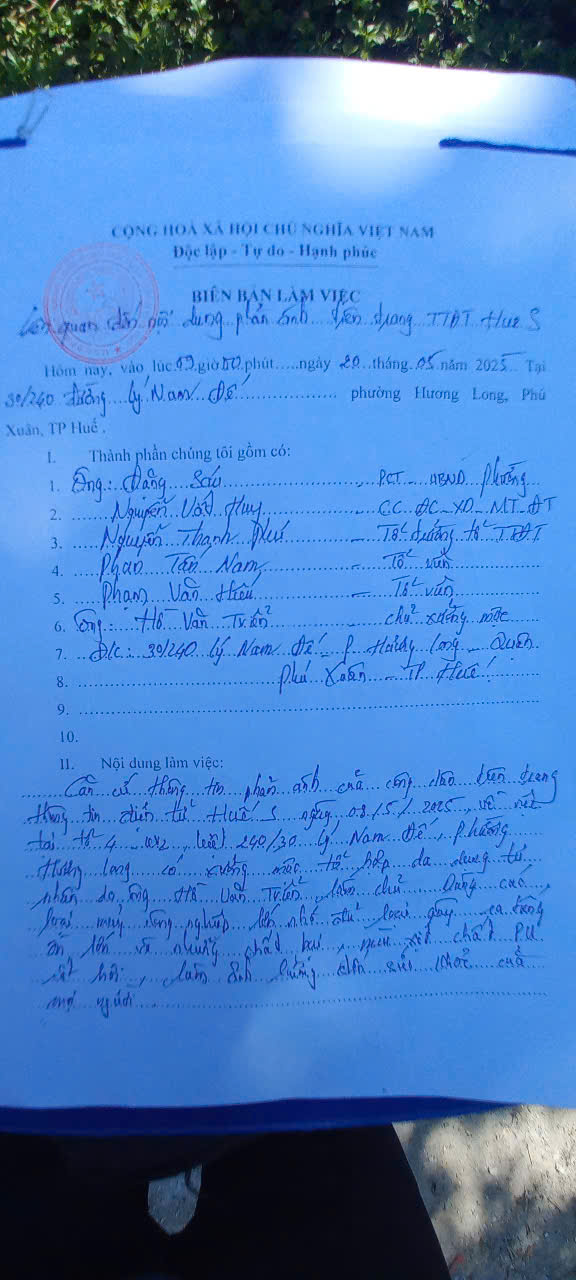 CỘNG HOÀ XÃ HỘI CHỦ NGHĨA VIỆT NAM
Độc lập - Tự do - Hạnh phúc
BIÊN BẢN LÀM VIỆC
Liên quan đến nội dung phản ánh trên trang TTĐT Hue S
Hôm nay, vào lúc 09 giờ 00 phút.....ngày 20 tháng 05 năm 2025 Tại
30/240 đường Lý Nam Đế ............ phường Hương Long, Phú
Xuân, TP Huế.
I. Thành phần chúng tôi gồm có:
1. Ông: Đặng Sáu - PCT - UBND Phường
2. Nguyễn Huy - CC ĐC-XD-MT-ĐT
3. Nguyễn Thanh Phú - Tổ trưởng tổ
4. Phan Tấn Nam - Tổ viên
5. Phạm Văn Hiếu - Tổ viên
6. Ông: Hồ Văn Triển - chủ xưởng mộc
7. Đ/c: 30/240 Lý Nam Đế - P Hương Long - Quận
8. Phú Xuân - TP Huế
9.
10.
II. Nội dung làm việc:
Căn cứ thông tin phản ánh của công dân trên trang
thông tin điện tử Huế S ngày 08/5/2025, về việc
tại tổ 4, kiệt 240/30 Lý Nam Đế, Phường
Hương Long có xưởng mộc tổ hợp đa dụng tư
nhân do ông Hồ Văn Triển làm chủ. Dùng các
loại máy công nghiệp lớn nhỏ đủ loại gây ra tiếng
ồn lớn và những chất bụi, mùi xịt chất PU
rất hôi, làm ảnh hưởng đến sức khoẻ của
mọi người